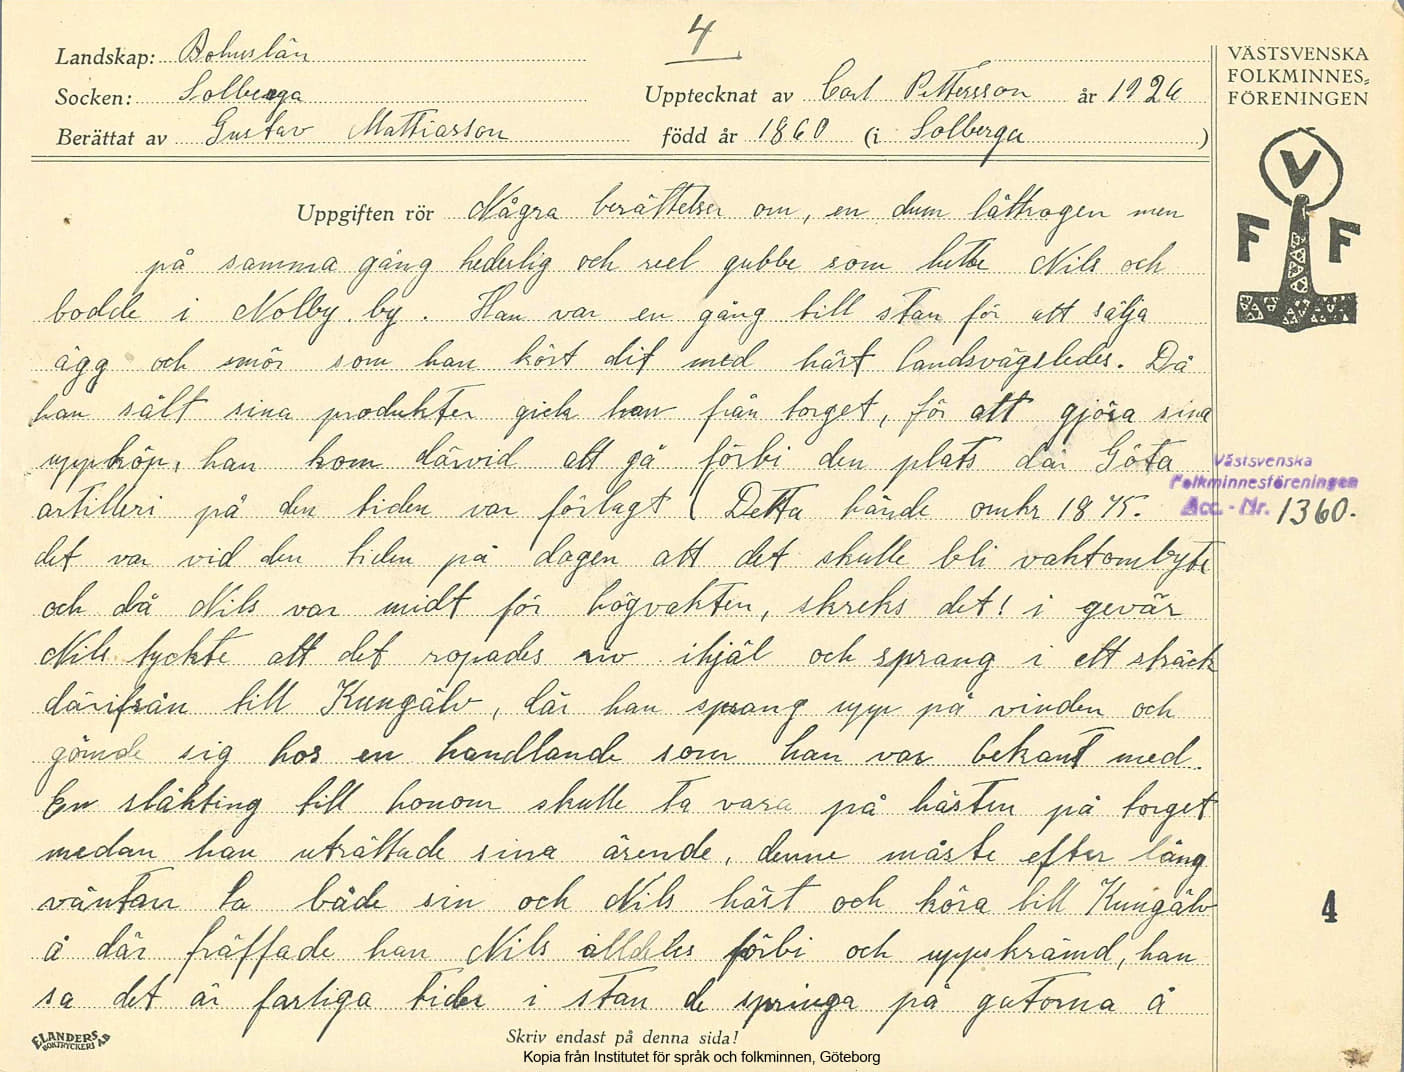 4
Landskap: Bohuslän
Socken: Solberga
Upptecknat av Carl Pettersson år 1926
Berättat av Gustav Mattiasson född år 1860 (i Solberga)
VÄSTSVENSKA
FOLKMINNES-
FÖRENINGEN
V
F F
Uppgiften rör Några berättelser om, en dum lättrogen men
på samma gång hederlig och reel gubbe som hette Nils och
bodde i Nolby by. Han var en gång till stan för att sälja
ägg och smör som han kört dit med häst landsvägsledes. Då
han sålt sina produkter gick han från torget, för att gjöra sina
uppköp, han kom därvid att gå förbi den plats där Göta
artilleri på den tiden var förlagt (Detta hände omkr 1875.
det var vid den tiden på dagen att det skulle bli vaktombyte
och då Nils var midt för högvakten, skreks det! i gevär
Nils tyckte att det ropades riv ihjäl och sprang i ett sträck
därifrån till Kungälv, där han sprang upp på vinden och
gömde sig hos en handlande som han var bekant med.
En släkting till honom skulle ta vara på hästen på torget
medan han uträttade sina ärende, denne måste efter lång
väntan ta både sin och Nils häst och köra till Kungälv
å där träffade han Nils alldeles förbi och uppskrämd, han
sa det är farliga tider i stan de springa på gatorna å
Västsvenska
Folkminnesföreningen
Acc. - Nr. 1360.
4
ELANDERS
BOKTRYCKERI AB
Skriv endast på denna sida!
Kopia från Institutet för språk och folkminnen, Göteborg